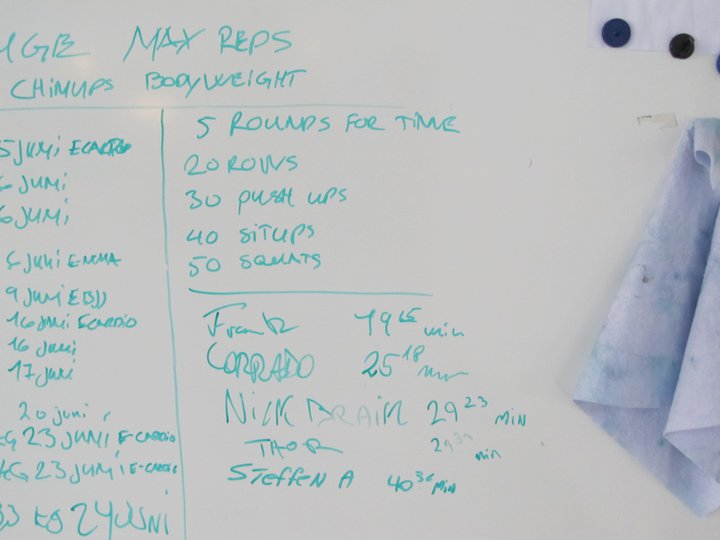 MAX REPS
CHINUPS BODYWEIGHT
5 JUNI E-CARDIO
6 JUNI
6 JUNI
JUNI
9 JUNI EBJJ
16 JUNI ECARDIO
16 juni
17 juni
20 juni
23 JUNI E-CARDIO
23 JUNI E-CARDIO
24 JUNI
5 ROUNDS FOR TIME
20 ROWS
30 PUSH UPS
40 SITUPS
50 SQUATS
19 15 min
CORRADO 25 18 min
NICK 29 23 MIN
THOR 29 min
STEFFEN A 40 36 MIN